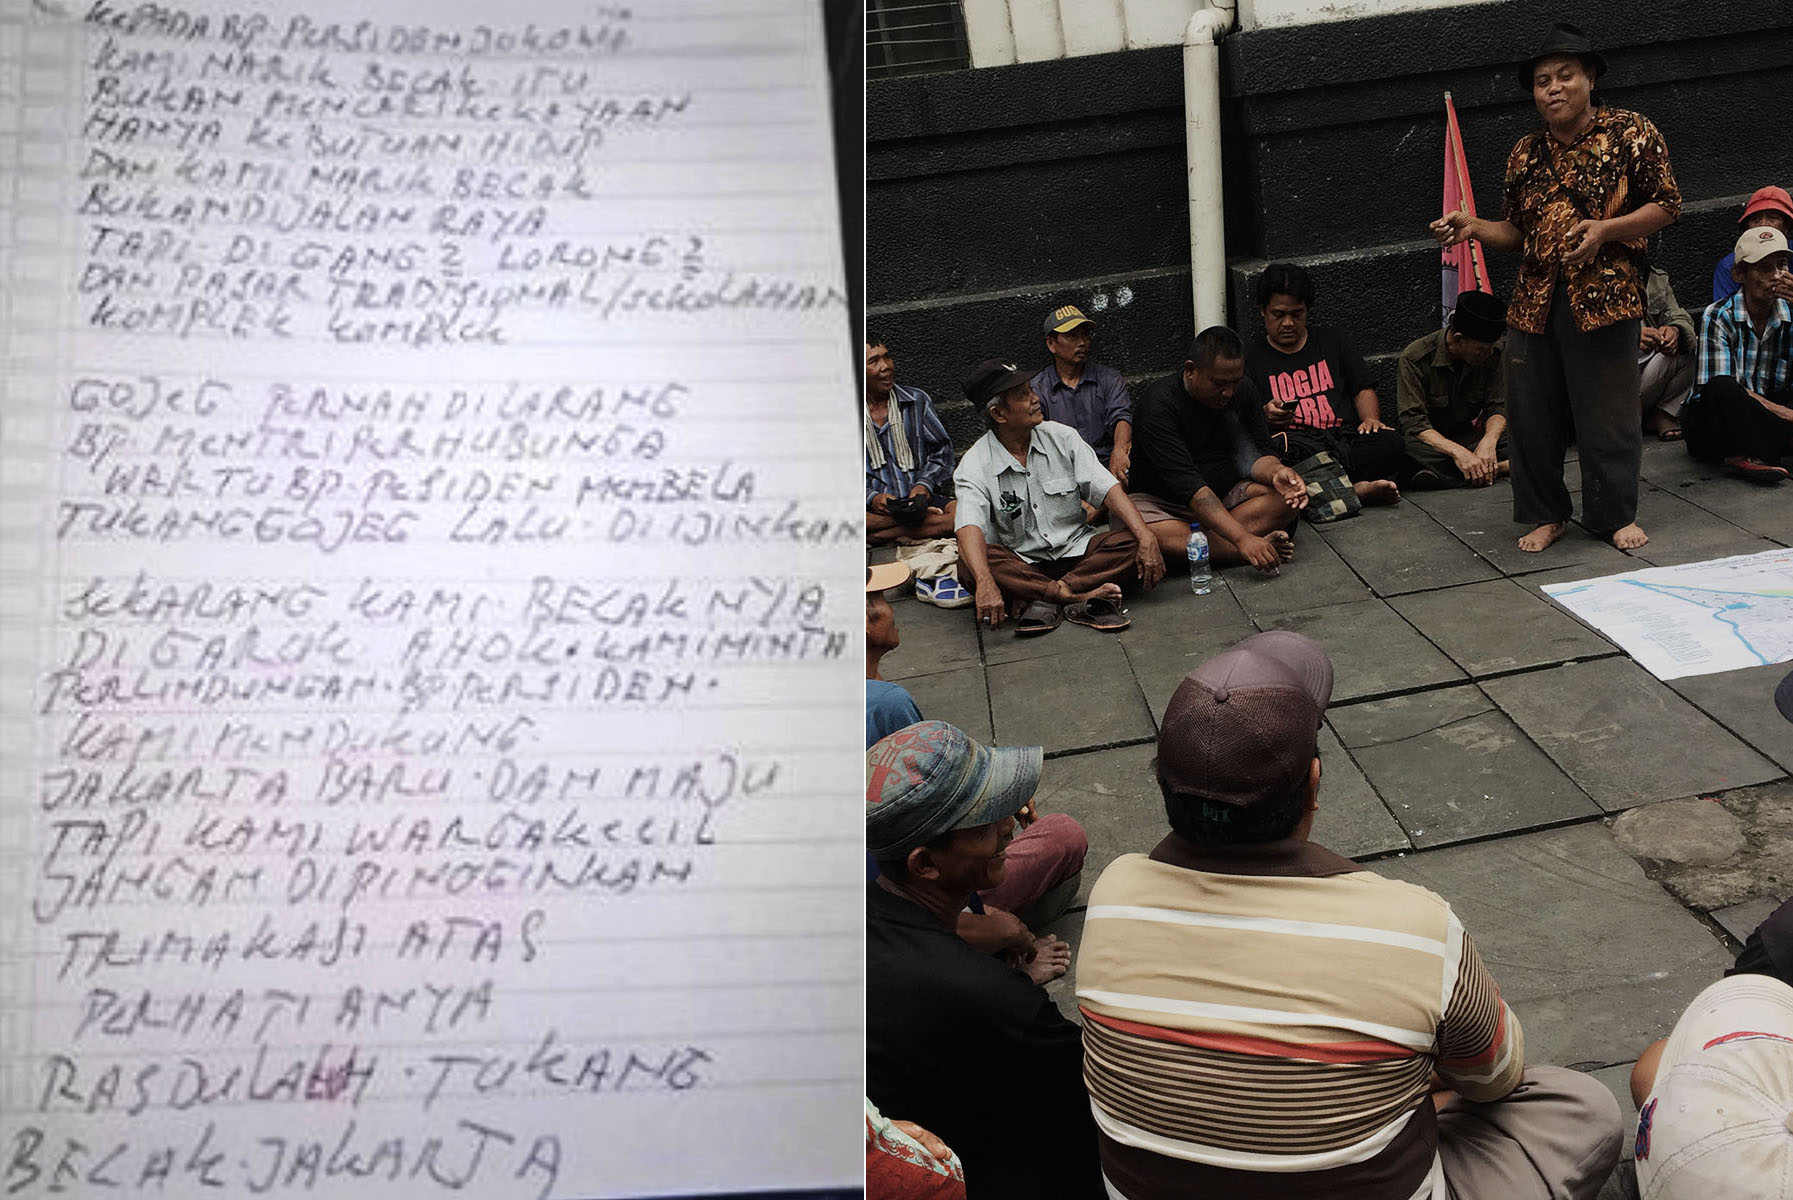 KEPADA BP. PERSIDEN JOKOWI
KAMI NARIK BECAK ITU
BUKAN MENCARI KEKAYAAN
HANYA KEBUTUAN HIDUP
DAN KAMI NARIK BECAK
BUKAN DIJALAN RAYA
TAPI DI GANG2 LORONG2
DAN PASAR TRADISIONAL/SEKOLAHAN
KOMPLEK KOMPLEK
GOJEG PERNAH DILARANG
BP. MENTRI PERHUBUNGA
WAKTU BP. PESIDEN MEMBELA
TUKANG GOJEG LALU DI IJINKAN
SEKARANG KAMI BECAK NYA
DI GARUK AHOK. KAMI MINTA
PERLINDUNGAN. BP. PERSIDEN.
KAMI MENDUKUNG
JAKARTA BARU. DAN MAJU
TAPI KAMI WARGA KECIL
JANGAN DIPINGGINKAN
TRIMAKASI ATAS
PERHATIANYA
RASDULAH. TUKANG
BECAK. JAKARTA
JOGJA